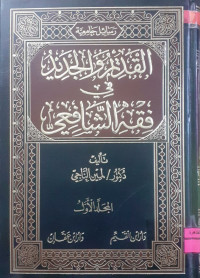 رسائل جامعية
القديم والجديد
في
فقه الشافعي
تأليف
دكتور / لمين الناجي
المجلد الأول
دار ابن القيم
دار ابن عفان